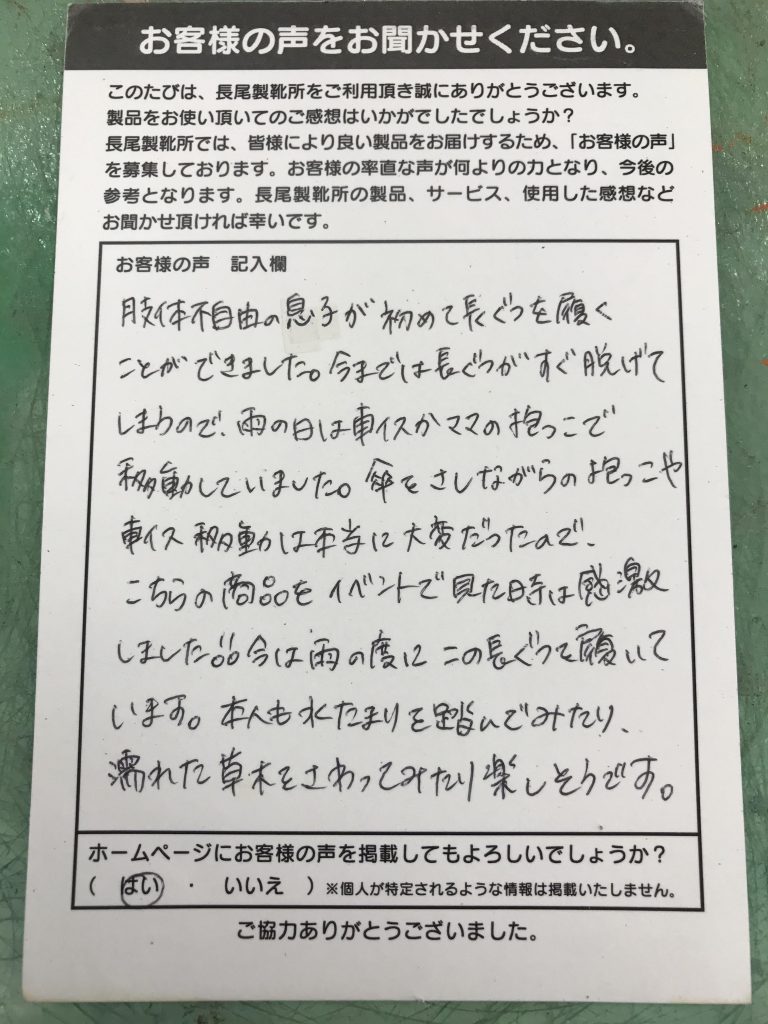 お客様の声をお聞かせください。
このたびは、長尾製靴所をご利用頂き誠にありがとうございます。
製品をお使い頂いてのご感想はいかがでしたでしょうか？
長尾製靴所では、皆様により良い製品をお届けするため、「お客様の声」
を募集しております。お客様の率直な声が何よりの力となり、今後の
参考となります。長尾製靴所の製品、サービス、使用した感想など
お聞かせ頂ければ幸いです。
お客様の声　記入欄
肢体不自由の息子が初めて長ぐつを履く
ことができました。今までは長ぐつがすぐ脱げて
しまうので、雨の日は車イスかママの抱っこで
移動していました。傘をさしながらの抱っこや
車イス移動は本当に大変だったので、
こちらの商品をイベントで見た時は感激
しました!!今は雨の度にこの長ぐつを履いて
います。本人も水たまりを踏んでみたり、
濡れた草木をさわってみたり楽しそうです。
ホームページにお客様の声を掲載してもよろしいでしょうか？
（　はい　・　いいえ　）※個人が特定されるような情報は掲載いたしません。
ご協力ありがとうございました。